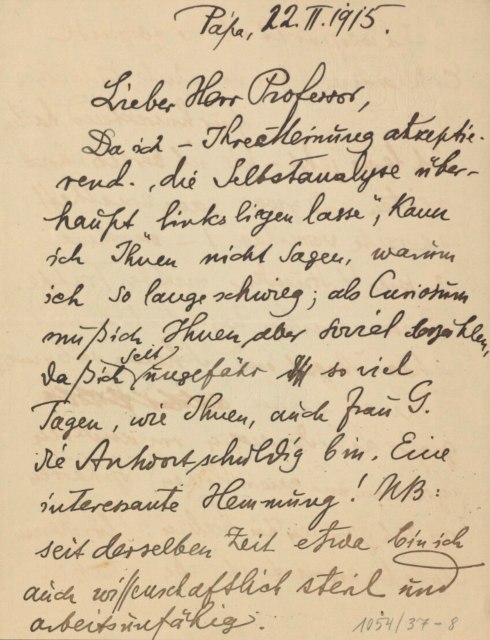 Pápa, 22.II.1915.
Lieber Herr Professor,
Da ich – Ihre Meinung akzeptie-
rend – „die Selbstanalyse über-
haupt links liegen lasse“, kann
ich Ihnen nicht sagen, warum
ich so lange schwieg; als Curiosum
muß ich Ihnen aber soviel erzählen,
daß ich seit ungefähr so viel
Tagen, wie Ihnen, auch Frau G.
die Antwort schuldig bin. Eine
interessante Hemmung! NB:
seit derselben Zeit etwa bin ich
auch wissenschaftlich steril und
arbeitsunfähig.
1054/37-8